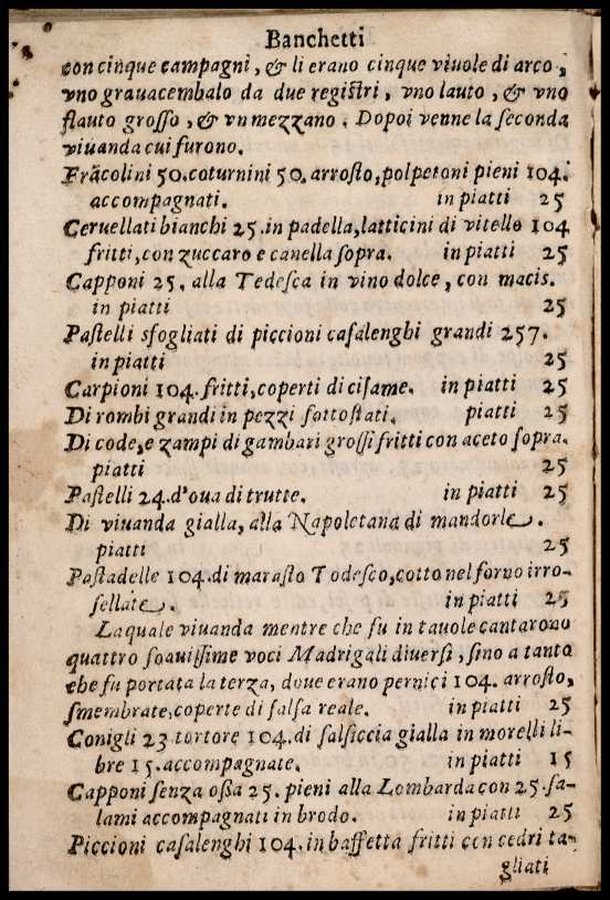 Banchetti
con cinque campagni, & li erano cinque viuole di arco,
vno grauacembalo da due registri, vno lauto, & vno
flauto grosso, & vn mezzano. Dopoi venne la seconda
viuanda cui furono.
Frãcolini 50. coturnini 50. arrosto, polpetoni pieni 104.
accompagnati. in piatti 25
Ceruellati bianchi 25. in padella, latticini di vitello 104
fritti, con zuccaro e canella sopra. in piatti 25
Capponi 25. alla Tedesca in vino dolce, con macis.
in piatti 25
Pastelli sfogliati di piccioni casalenghi grandi 257.
in piatti 25
Carpioni 104. fritti, coperti di cisame. in piatti 25
Di rombi grandi in pezzi sottostati. piatti 25
Di code, e zampi di gambari grossi fritti con aceto sopra.
piatti 25
Pastelli 24. d'oua di trutte. in piatti 25
Di viuanda gialla, alla Napoletana di mandorle.
piatti 25
Pastadelle 104. di marasto Todesco, cotto nel forno irro-
sellate. in piatti 25
La quale viuanda mentre che fu in tauole cantarono
quattro soauissime voci Madrigali diuersi, sino a tanto
che fu portata la terza, doue erano pernici 104. arrosto,
smembrate, coperte di salsa reale. in piatti 25
Conigli 23 tortore 104. di salsiccia gialla in morelli li-
bre 15. accompagnate. in piatti 15
Capponi senza ossa 25. pieni alla Lombarda con 25. sa-
lami accompagnati in brodo. in piatti 25
Piccioni casalenghi 104. in baffetta fritti con cedri ta-
gliati